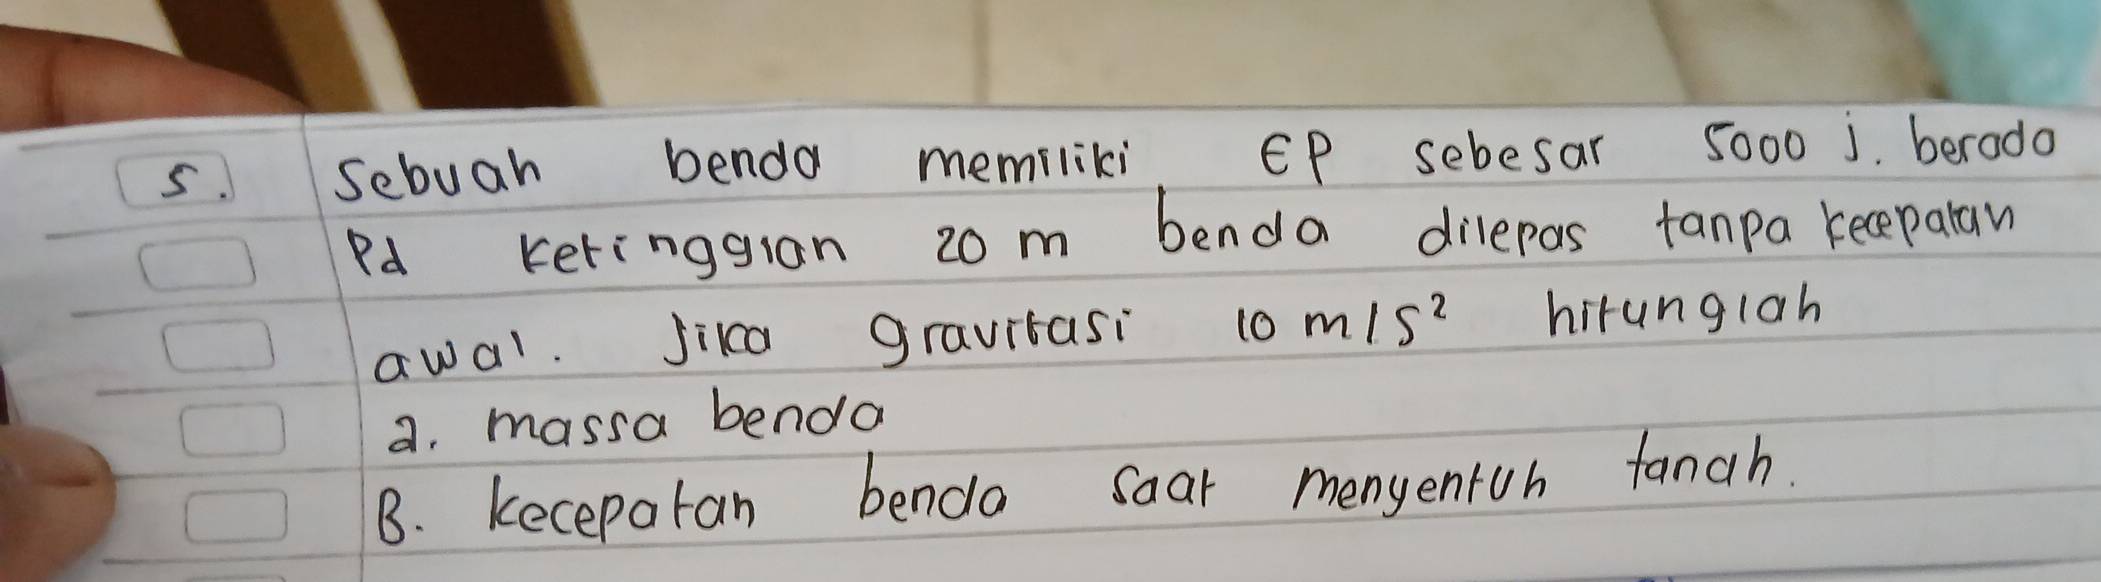 5. Sebuah benda memiliki EP sebesar 5000 j. berada
Pd ketinggian 20 m benda dilepas tanpa kecepatan
awal. Jika gravitasi 10 m/s² hitunglah
a. massa benda
B. kecepatan benda saat menyentuh tanah.